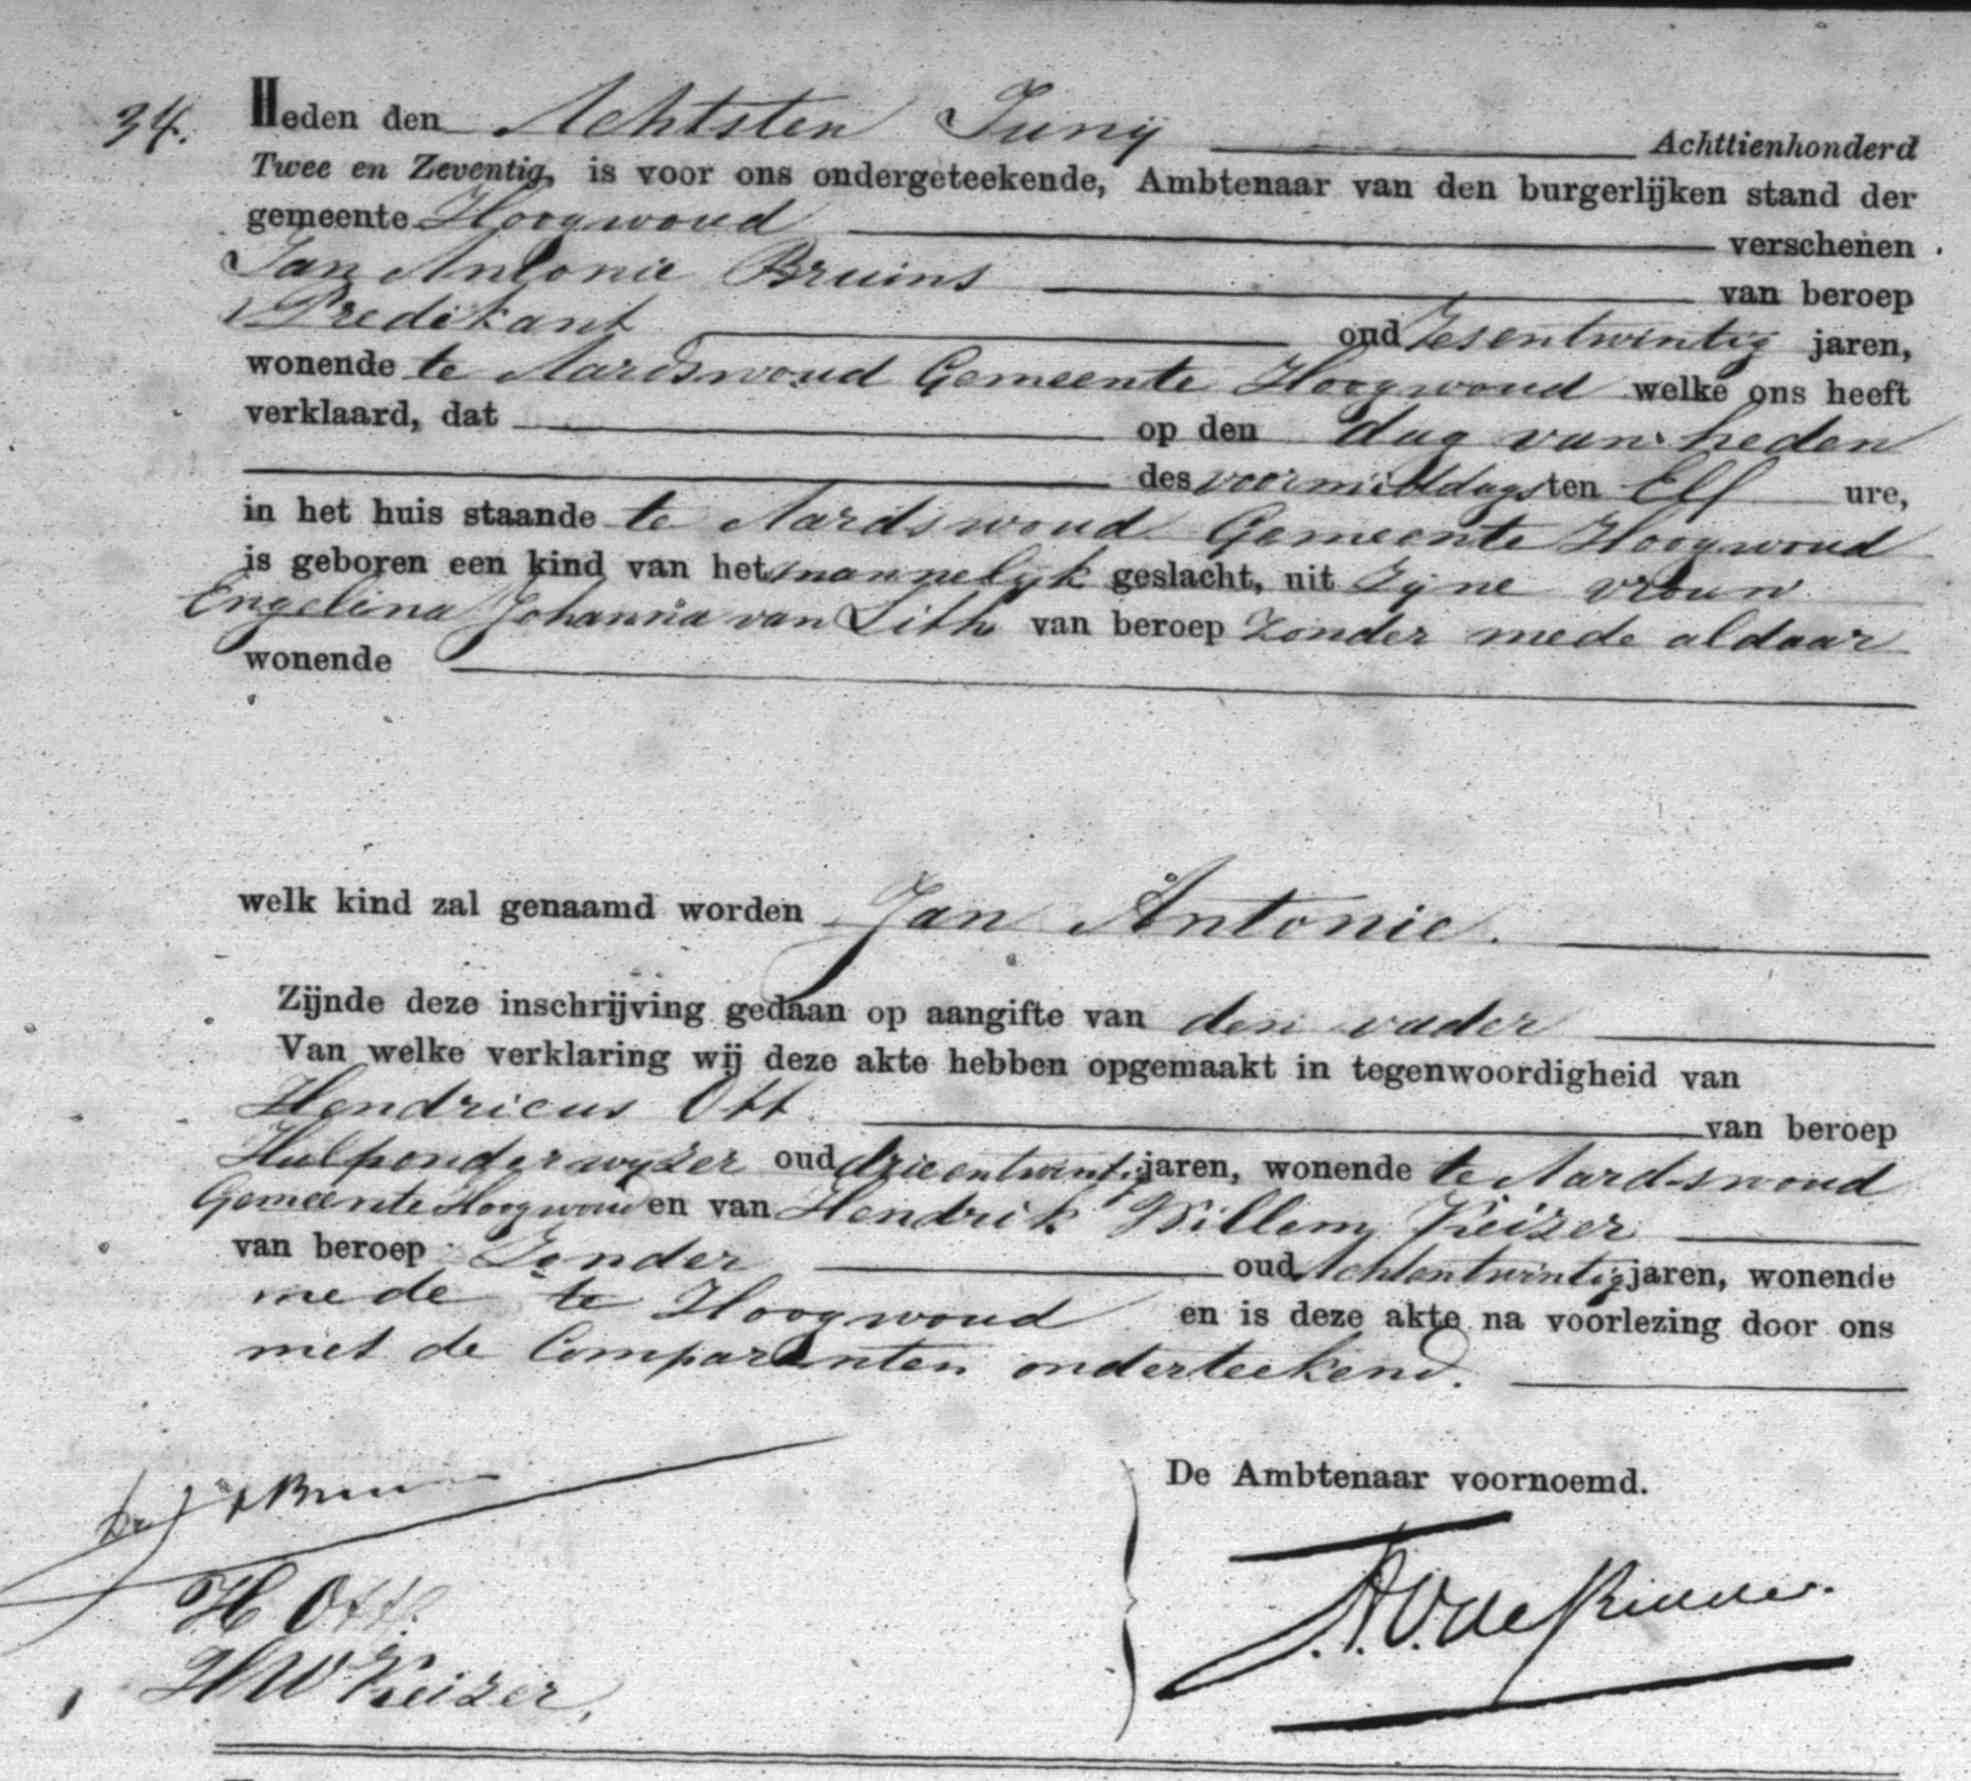 34. Heden den Achtsten Junij Achttienhonderd
Twee en Zeventig, is voor ons ondergeteekende, Ambtenaar van den burgerlijken stand der
gemeente Hoogwoud verschenen
Jan Antonie Bruins van beroep
Predikant oud Zesentwintig jaren,
wonende te Aardswoud Gemeente Hoogwoud welke ons heeft
verklaard, dat op den dag van heden
des voormiddags ten Elf ure,
in het huis staande te Aardswoud Gemeente Hoogwoud
is geboren een kind van het mannelijk geslacht, uit Zijne vrouw
Engelina Johanna van Lith van beroep Zonder mede aldaar
wonende
welk kind zal genaamd worden Jan Antonie.
Zijnde deze inschrijving gedaan op aangifte van den vader
Van welke verklaring wij deze akte hebben opgemaakt in tegenwoordigheid van
Hendricus Ott van beroep
Hulponderwyzer oud drieentwintig jaren, wonende te Aardswoud
Gemeente Hoogwoud en van Hendrik Willem Keizer
van beroep Zonder oud Achtentwintig jaren, wonende
mede te Hoogwoud en is deze akte na voorlezing door ons
met de Comparanten onderteekend.
De Ambtenaar voornoemd.
H Ott.
HW Keizer,